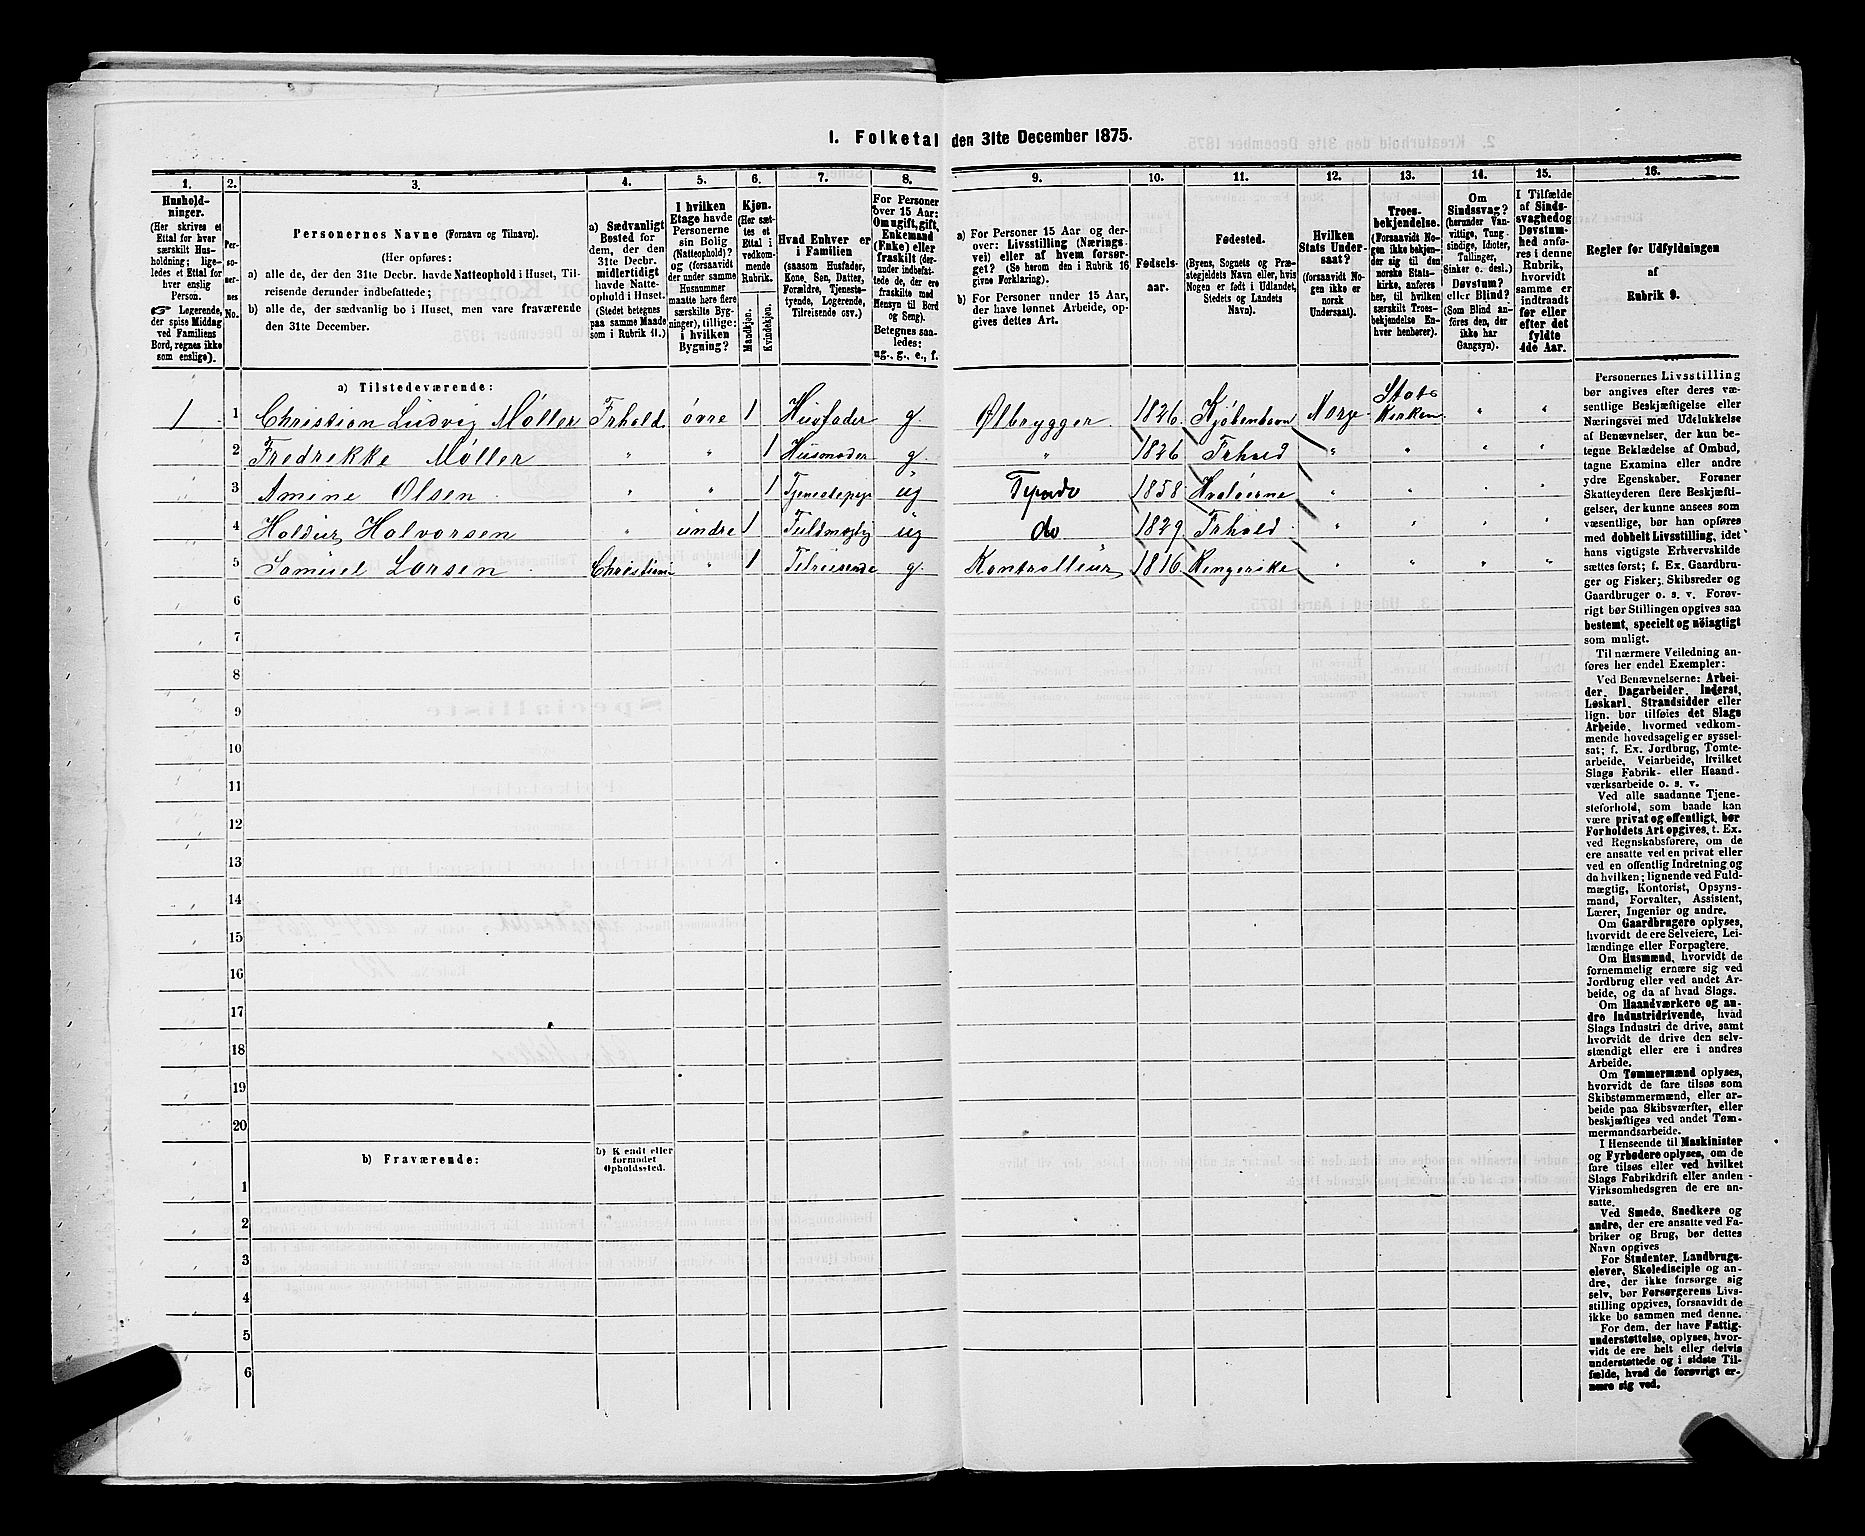 I. Folketal den 31te December 1875.
1. 2. 3. 4. 5. 6. 7. 8. 9. 10. 11. 12. 13. 14. 15. 16.
Hushold-
ninger.
(Her skrives et
Ettal for hver
særskilt Hus-
holdning; lige-
ledes et Ettal for
hver enslig
Person.
☞ Logerende,
der spise Middag
ved Familiens
Bord, regnes ikke
som enslige).
Per-
so-
ner-
nes
No.
Personernes Navne (Fornavn og Tilnavn).
(Her opføres:
a) alle de, der den 31te Decbr. havde Natteophold i Huset, Til-
reisende derunder indbefattede;
b) alle de, der sædvanlig bo i Huset, men vare fraværende
den 31te December.
a) Sædvanligt
Bosted for
dem, der den
31te Decbr.
midlertidigt
havde Natte-
ophold i Huset.
(Stedet betegnes
paa samme Maade
som i Rubrik 11.)
I hvilken
Etage havde
Personerne
sin Bolig
(Natteophold)?
og (forsaavidt
der under samme
Husnummer
maatte høre flere
særskilte Byg-
ninger), tillige:
i hvilken
Bygning?
Kjøn.
(Her sæt-
tes et
Ettal i
vedkom-
mende
Rubrik.
Mandkjøn.
Kvindekjøn.
Hvad Enhver er
i Familien
(saasom Husfader,
Kone, Søn, Datter,
Forældre, Tjeneste-
tyende, Logerende,
Tilreisende osv.)
For Personer
over 15 Aar:
Om ugift, gift,
Enkemand
(Enke) eller
fraskilt (der-
under indbefat-
tede de, der ere
fraskilte med
Hensyn til Bord
og Seng).
Betegnes saa-
ledes:
ug., g., e., f.
a) For Personer 15 Aar og der-
over: Livsstilling (Nærings-
vei) eller af hvem forsør-
get? (Se herom den i Rubrik 16
givne Forklaring).
b) For Personer under 15 Aar,
der have lønnet Arbeide, op-
gives dettes Art.
Fødsels-
aar.
Fødested.
(Byens, Sognets og Præ-
stegjeldets Navn eller, hvis
Nogen er født i Udlandet,
Stedets og Landets
Navn).
Hvilken
Stats Under-
saat?
(forsaavidt No-
gen ikke er
norsk
Undersaat).
Troes-
bekjendelse.
(Forsaavidt No-
gen ikke bekjen-
der sig til den
norske Stats-
kirke, anføres
her, til hvilken
særskilt Troes-
bekjendelse En-
hver henhører).
Om
Sindssvag?
(herunder Van-
vittige, Tung-
sindige, Idioter,
Tullinger,
Sinker o. desl.)
Døvstum?
eller Blind?
(Som Blind an-
føres den, der
ikke har
Gangsyn).
I Tilfælde
af Sinds-
svaghed og
Døvstum-
hed anfø-
res i denne
Rubrik,
hvorvidt
samme er
indtraadt
før eller
efter det
fyldte
4de Aar.
Regler for Udfyldningen
af
Rubrik 9.
a) Tilstedeværende:
1 1 Christian Ludvig Møller Frhald øvre 1 Husfader g. Ølbrygger 1826. Kjøbenhavn Norge Stats Kirken " "
2 Fredrekke Møller " " 1 Husmoder g. " 1826 Frhald " " " "
3 Amine Olsen " " 1 ug 1858 Hvaløerne " " " "
4 Halvorsen " undre 1 ug do 1829 Frhald " " " "
5 Samuel Larsen Christiani " 1 Tilreisende g. Kontrolleur 1816 Ringerike " " " "
6
7
8
9
10
11
12
13
14
15
16
17
18
19
20
b) Fraværende:
b) Kjendt eller
formodet
Opholdssted.
1
2
3
4
5
6
Personernes Livsstilling
bør angives efter deres væ-
sentlige Beskjæftigelse eller
Næringsvei med Udelukkelse
af Benævnelser, der kun be-
tegne Beklædelse af Ombud,
tagne Examina eller andre
ydre Egenskaber. Forener
Skatteyderen flere Beskjæfti-
gelser, der kunne ansees som
væsentlige, bør han opføres
med dobbelt Livsstilling, idet
hans vigtigste Erhvervskilde
sættes først; f. Ex. Gaardbru-
ger og Fisker; Skibsreder og
Gaardbruger o. s. v. Forøv-
rigt bør Stillingen opgives saa
bestemt, specielt og nøiagtigt
som muligt.
Til nærmere Veiledning an-
føres her endel Exempler:
Ved Benævnelserne: Arbei-
der, Dagarbeider, Inderst,
Løskarl, Strandsidder eller
lign. bør tilføies det Slags
Arbeide, hvormed vedkom-
mende hovedsagelig er syssel-
sat; f. Ex. Jordbrug, Tomte-
arbeide, Veiarbeide, hvilket
Slags Fabrik- eller Haand-
værksarbeide o. s. v.
Ved alle saadanne Tjene-
steforhold, som baade kan
være privat og offentligt, bør
Forholdets Art opgives, t. Ex.
ved Regnskabsførere, om de
ere ansatte ved en privat eller
ved en offentlig Indretning og
da hvilken; lignende ved Fuld-
mægtig, Kontorist, Opsyns-
mand, Forvalter, Assistent,
Lærer, Ingeniør og andre.
Om Gaardbrugere oplyses,
hvorvidt de ere Selveiere, Lei-
lændinge eller Forpagtere.
Om Husmænd, hvorvidt de
fornemmelig ernære sig ved
Jordbrug eller ved andet Ar-
beide, og da af hvad Slags.
Om Haandværkere og an-
dre Industridrivende, hvad
Slags Industri de drive, samt
hvorvidt de drive den selv-
stændigt eller ere i andres
Arbeide.
Om Tømmermænd oplyses,
hvorvidt de fare tilsøs som
Skibstømmermænd, eller ar-
beide paa Skibsværfter, eller
beskjæftiges ved andet Tøm-
mermandsarbeide.
I Henseende til Maskinister
og Fyrbødere oplyses, om de
fare tilsøs eller ved hvilket
Slags Fabrikdrift eller anden
Virksomhedsgren de ere an-
satte.
Ved Smede, Snedkere og
andre, der ere ansatte ved Fa-
briker og Brug, bør dettes
Navn opgives
For Studenter, Landbrugs-
elever, Skoledisciple og an-
dre, der ikke forsørge sig
selv, bør Forsørgerens Livs-
stilling opgives, forsaavidt de
ikke bo sammen med denne.
For dem, der have Fattig-
understøttelse, oplyses, hvor-
vidt de ere helt eller delvis
understøttede og i sidste Til-
fælde, hvad de forøvrigt er-
nære sig ved.